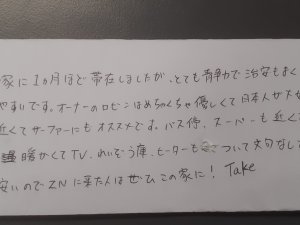 家に1ヵ月ほど滞在しましたが、とても静かで治安もよく
やすいです。オーナーのロビンはめちゃくちゃ優しくて日本人が大
近くてサーファーにもオススメです。バス停、スーパーも近く
暖かくてTV、れいぞう庫、ヒーターも ついて文句なし
安いのでNに来た人はぜひこの家に! Take